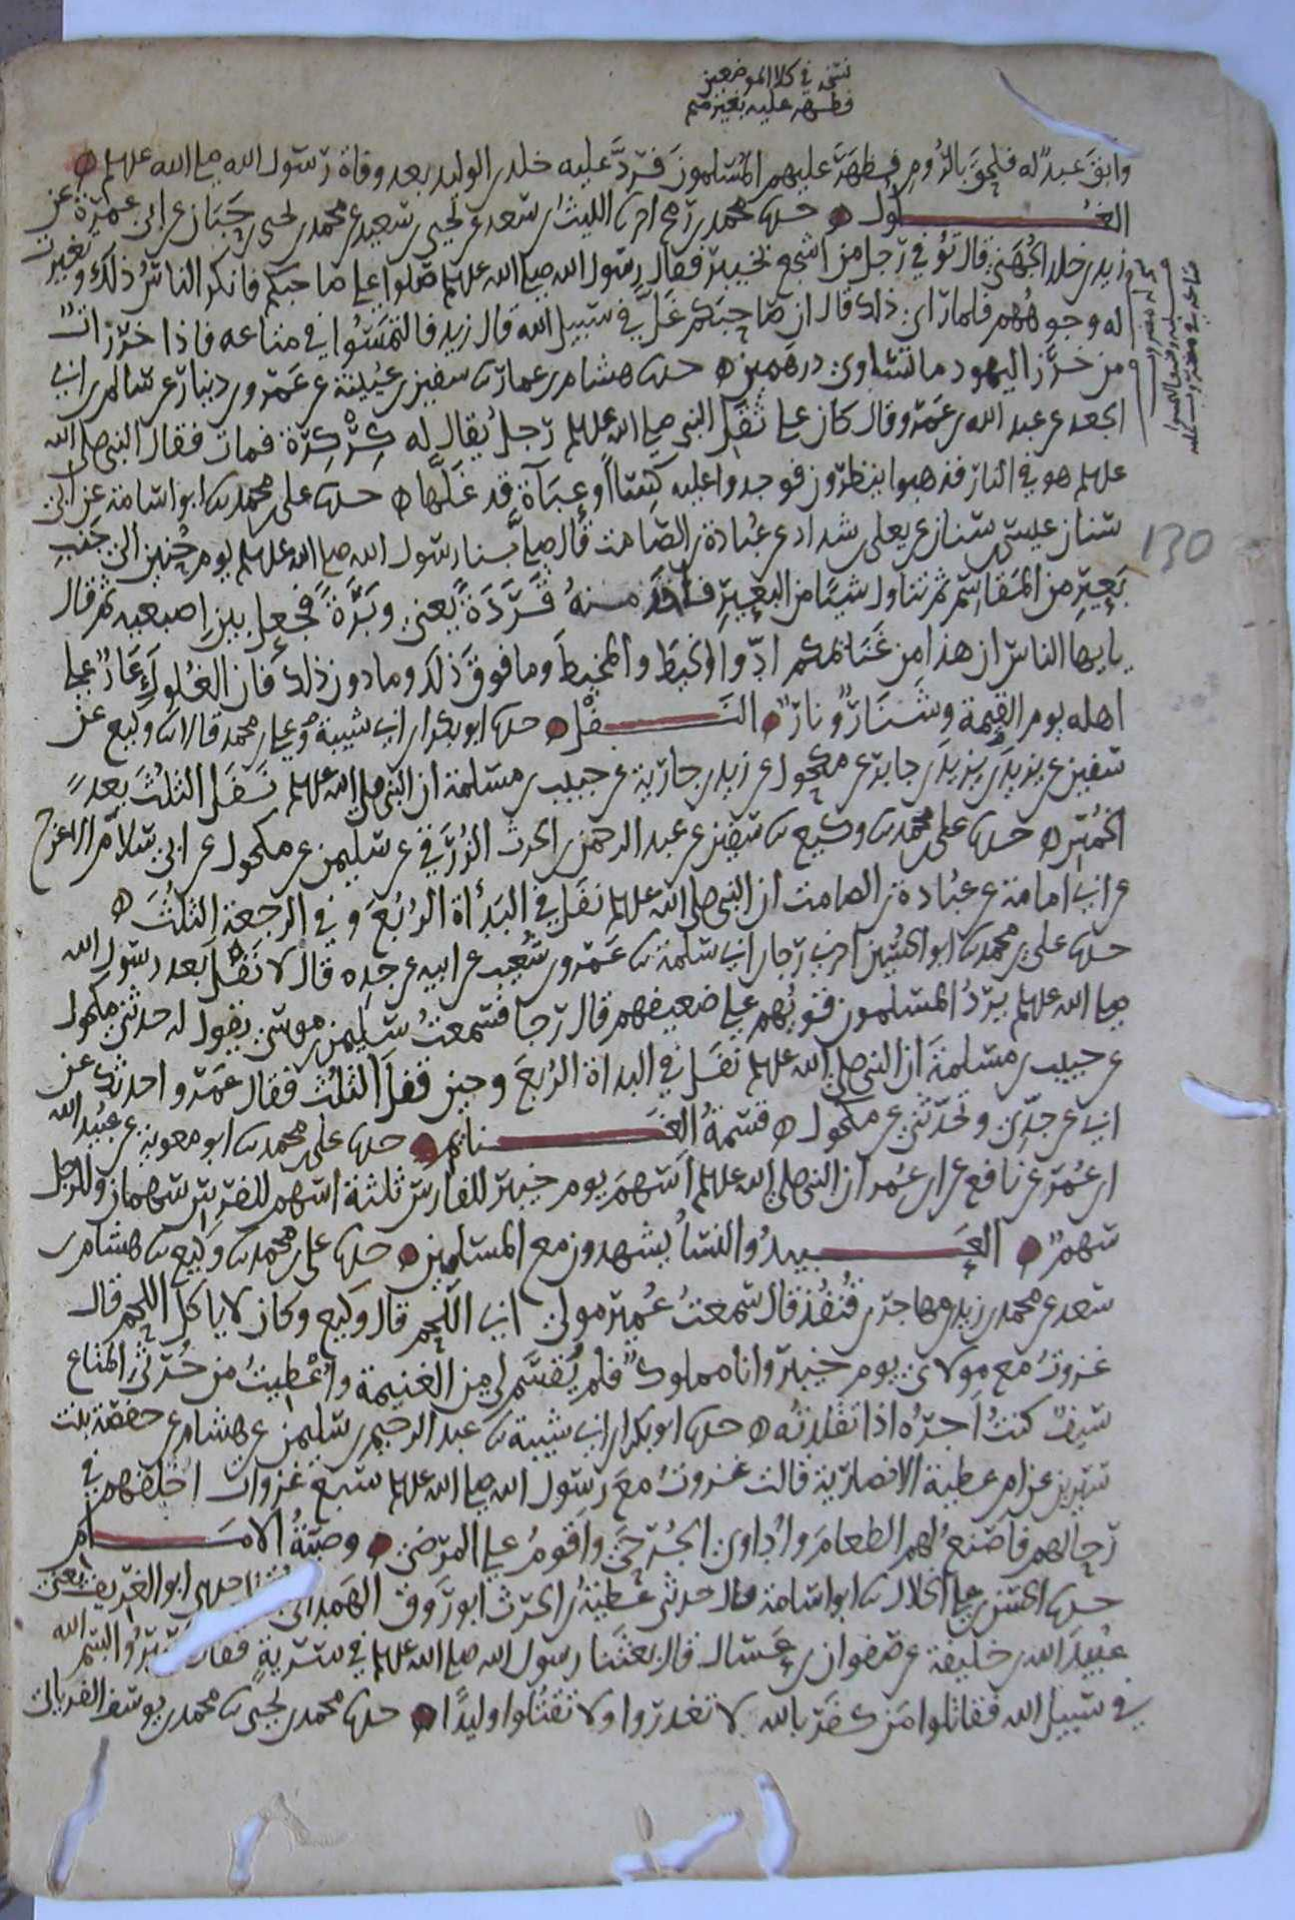 نسخه في كلا الموضعين
فظهر عليه بغير ميم
وابق عبد له فلحق بالرُّومِ فظهَرَ عليهم المُسْلمونَ فَرَدَّ عليه خلد بن الوليد بعد وفاة رسول الله صلى الله عليه وسلم ه
الغُلُول ه حدثنا محمد بن رمح اخبرنا الليث بن سعد عن يحيى بن سعيد عن محمد بن يحيى بن حَبَّان عن ابي عمرة عن
زيد بن خلد الجُهَني قال تُوُفي رجل من اشجع بخيبر فقال رسول الله صلى الله عليه وسلم صلوا على صاحبكم فانكر الناسُ ذلك وتغيرت
له وجوهُهم فلما راى ذلك قال ان صاحبَكم غَلَّ في سبيل الله قال زيد فالتمَسُوا في متاعه فاذا خرَزاتٌ
من خَرَز اليهود ما تساوى درهمين ه حدثنا هشام بن عمار ثنا سفين بن عُيينة عن عَمرو بن دينار عن سالم بن ابي
الجعد عن عبد الله بن عَمرو قال كان على ثَقَل النبي صلى الله عليه وسلم رجل يُقال له كِرْكِرَة فمات فقال النبي صلى الله
عليه وسلم هو في النار فذهبوا ينظرون فوجدوا عليه كِسَاً او عبآة قد غَلَّها ه حدثنا علي بن محمد ثنا ابو اسامة عن ابي
سنان عيسى بن سنان عن يعلى بن شداد عن عُبادة بن الصَّامت قال صلَّى بنا رسول الله صلى الله عليه وسلم يوم حُنين الى جَنبِ
بَعِيرٍ من المَقاسِم ثم تناول شيئا من البَعِيرِ فاخذ منهُ قَرَدَةً يعني وبَرَةً فجعل بين اصبعيه ثم قال
يا يها الناس ان هذا مِن غَنَائمكم ادّوا الخيطَ والمخيطَ وما فوقَ ذلك وما دون ذلك فان الغُلُولَ عَارٌ على
اهله يوم القيمة وشنَارٌ ونارٌ ه النَّفْل ه حدثنا ابو بكر بن ابي شيبة وعلي بن محمد قالا ثنا وكيع عن
سفين عن يزيد بن يزيد بن جابر عن مكحول عن زيد بن جارية عن حبيب بن مسلمة ان النبي صلى الله عليه وسلم نفَّل الثلُثَ بعد
الخُمُس ه حدثنا علي بن محمد ثنا وكيع ثنا سفين عن عبد الرحمن بن الحرث الزُّرَقي عن سليمن عن مكحول عن ابي سلّام الاعرج
عن ابي امامة عن عبُادة بن الصامت ان النبي صلى الله عليه وسلم نفّل في البَدْأة الرُبُعَ وفي الرجعة الثلثَ ه
حدثنا علي بن محمد ثنا ابو الحُسين اخبرنا رجا بن ابي سلمة ثنا عَمرو بن شُعيب عن ابيه عن جدِه قال لا نَفَلَ بعد رسول الله
صلى الله عليه وسلم يَرُدُّ المسلمون قويُهم على ضعيفهم قال رجا فسمعتُ سليمن بن موسى يقول له حدثني مكحول
عن حبيب بن مسلمةَ ان النبي صلى الله عليه وسلم نفَّل في البداة الرُبعَ وحين قفل الثلُثَ فقال عَمرو احدثك عن
ابي عن جدِّي وتحدّثني عن مكحول ه قسمةُ الغَنائم ه حدثنا علي بن محمد ثنا ابو معوية عن عُبيد الله
بن عُمَر عن نافع عن ابن عُمر ان النبي صلى الله عليه وسلم اَسْهَمَ يوم خيبر للفارس ثلثة اسهم للفرس سهمان وللرجل
سَهمٌ ه العَبيدُ والنسأُ يشهدون مع المسلمين ه حدثنا علي بن محمد ثنا وكيع ثنا هشام بن
سعد عن محمد بن زيد بن مهاجر بن قُنْفُذ قال سمعتُ عُمير مولى ابي اللحم قال وكيع وكان لا ياكل اللحم قال
غزوتُ مع مولاى يوم خيبر وانا مملوك فلم يُقسَم لي من الغنيمة واُعْطيتُ من خُرْثي المتاع
سيفا كنتُ اجرّه اذا تقلدتُه ه حدثنا ابو بكر بن ابي شيبة ثنا عبد الرحيم بن سليمن عن هشام عن حفصة بنت
سيرين عن ام عطية الانصارية قالت غزوتُ معَ رسول الله صلى الله عليه وسلم سبع غزوات اخلفهم في
رحالهم فاصنعُ لهم الطعامَ واُداوي الجَرحى واقومُ على المرضى ه وصيّةُ الامام
حدثنا الحسن بن علي الخلال ثنا ابو اسامة قال حدثني عطيةُ بن الحرث ابو رَوق الهَمداني حدثني ابو الغريف يعني
عُبيدَ الله بن خليفة عن صفوان بن عَسال قال بعثنا رسول الله صلى الله عليه وسلم في سريةٍ فقال سيرُوا بسم الله
في سبيل الله فقاتلوا مَن كفَر بالله لا تغدروا ولا تقتُلوا وليدًا ه حدثنا محمد بن يحيى ثنا محمد بن يوسف الفريابي
130